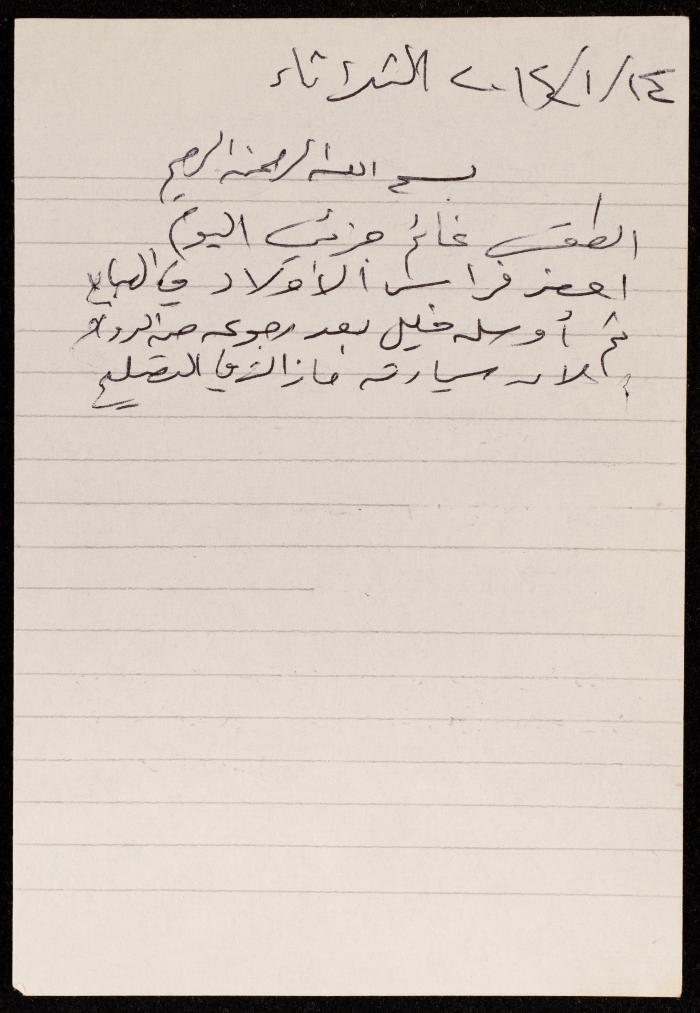 ١٤/١/٢٠١٤ الثلاثاء
بسم الله الرحمن الرحيم
الطقس غائم جزئي اليوم
احضر فراس الأولاد في الصباح
ثم أوصله خليل بعد رجوعه من
لأن سيارته مازالت في التصليح